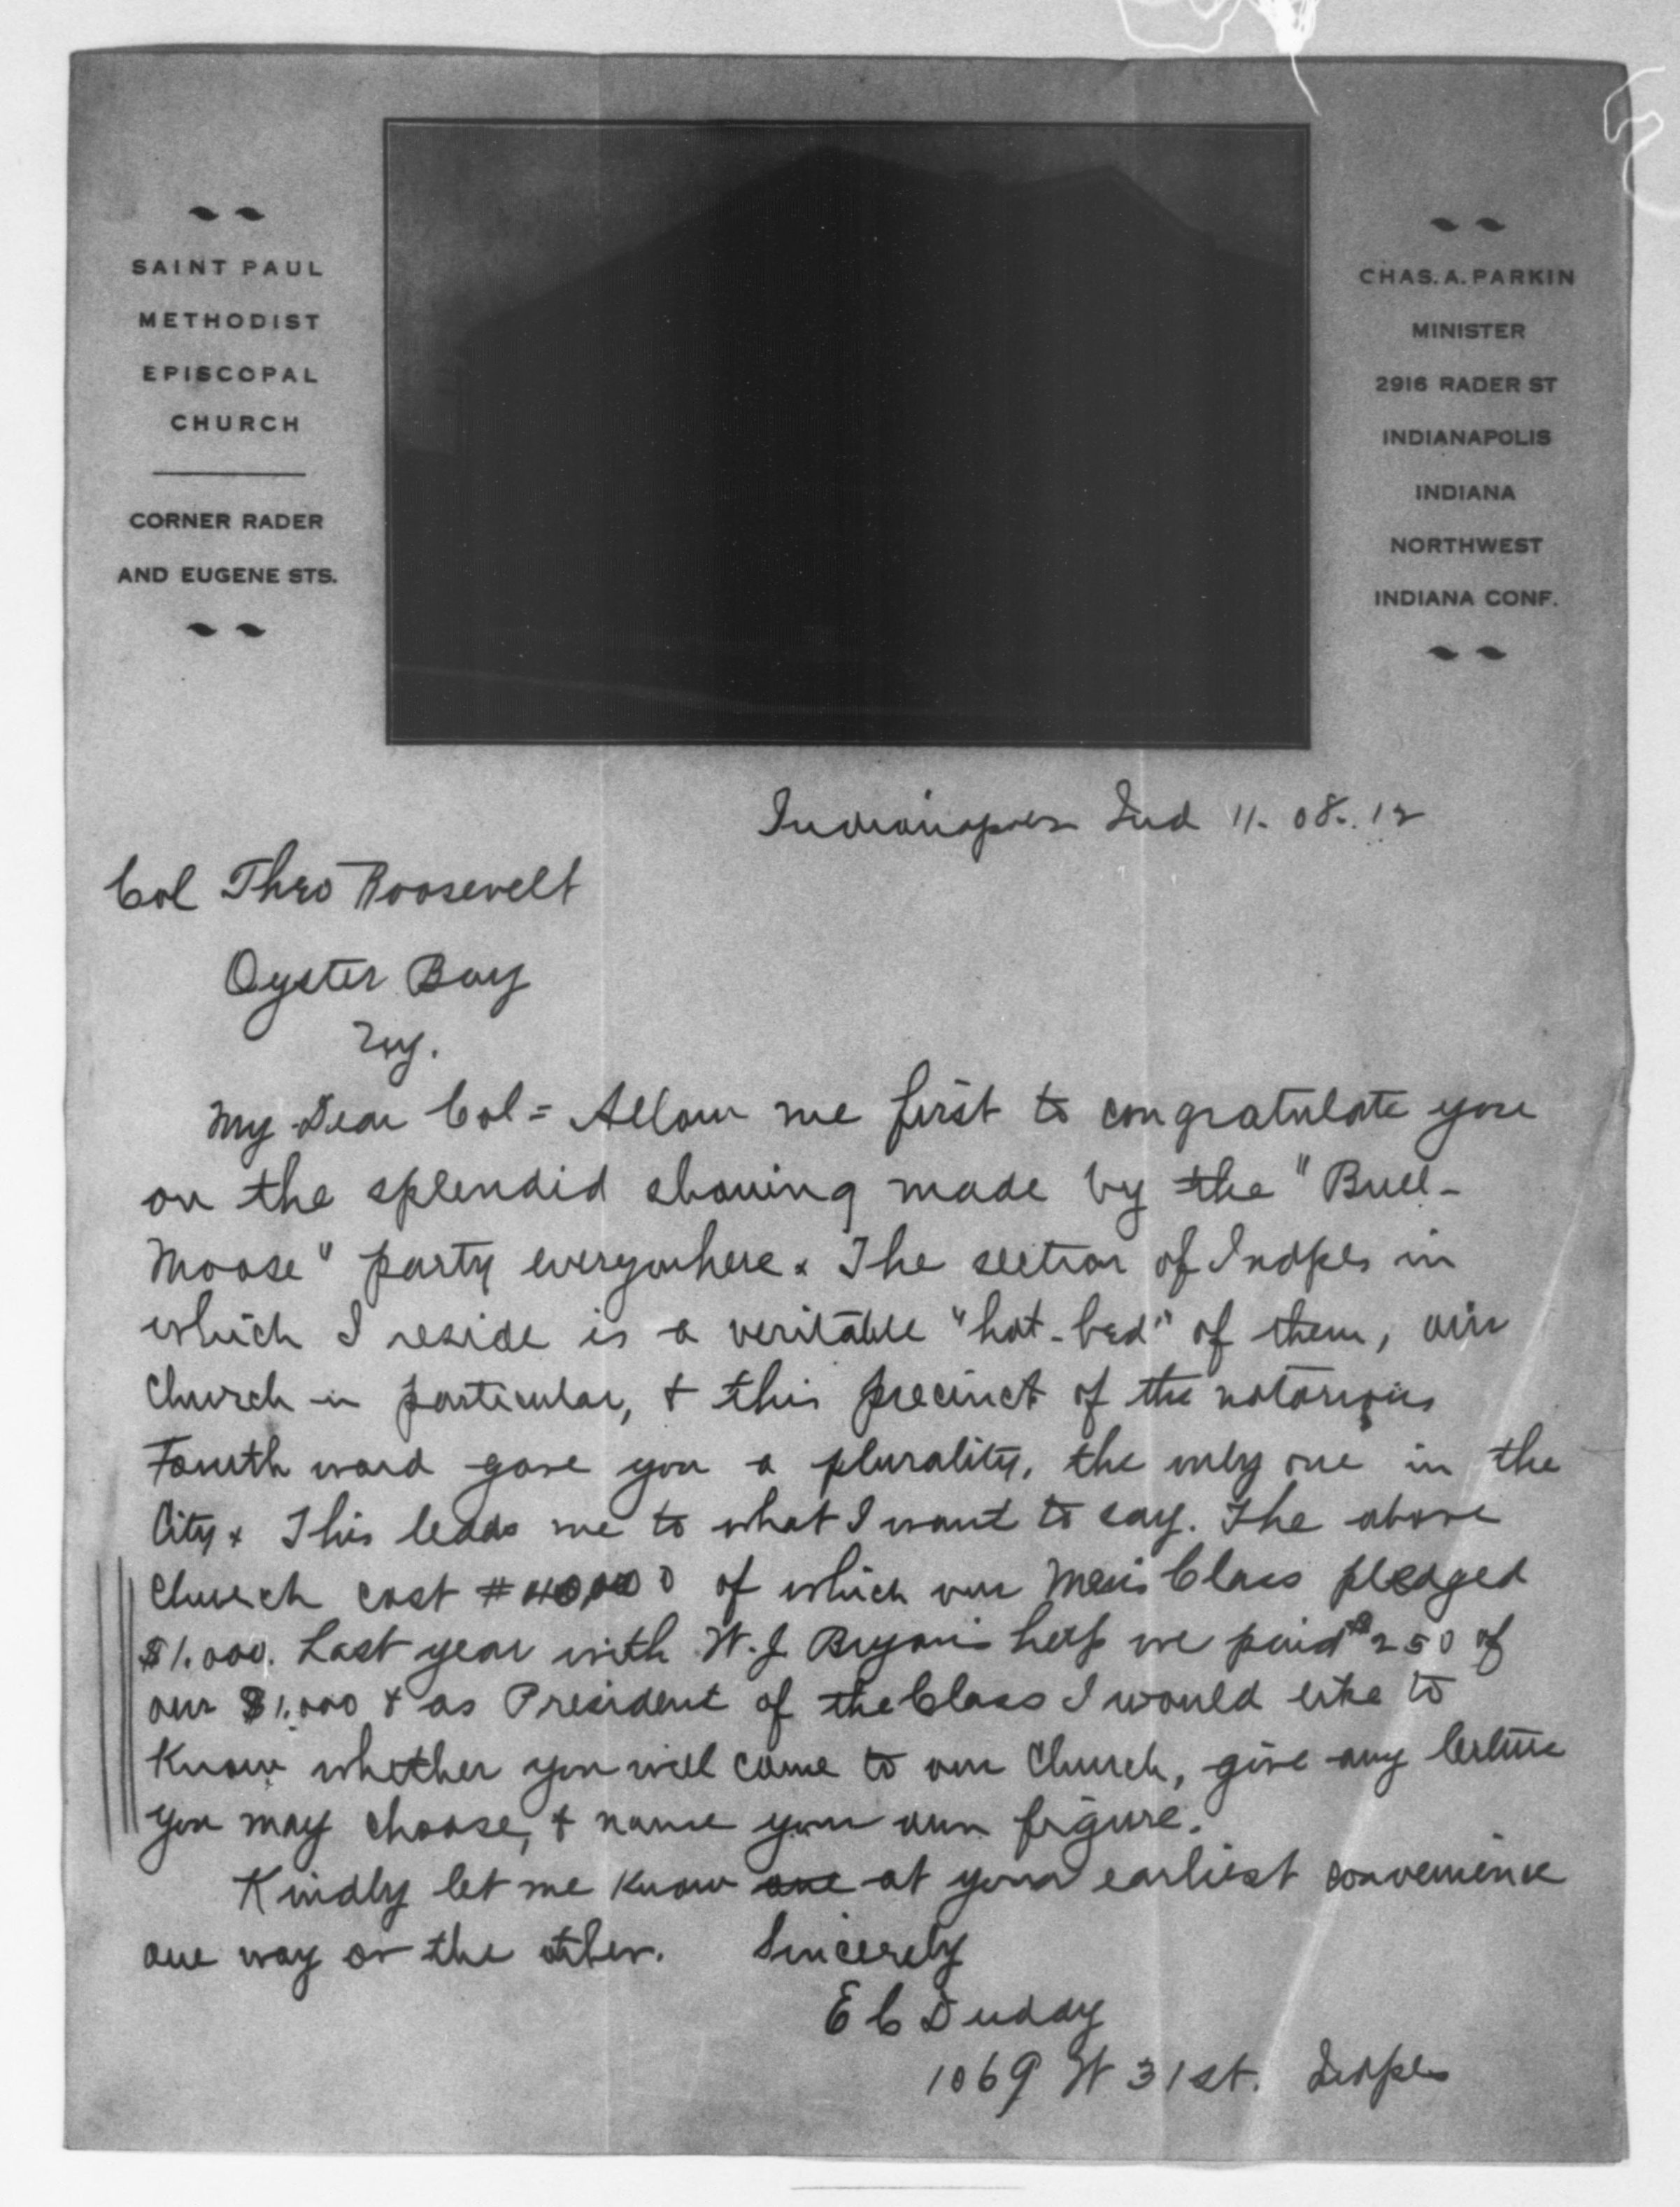 SAINT PAUL
METHODIST
EPISCOPAL
CHURCH
CORNER RADER
AND EUGENE STS.
CHAS. A. PARKIN
MINISTER
2916 RADER ST
INDIANAPOLIS
INDIANA
NORTHWEST
INDIANA CONF.
Indianapolis Ind 11-08-12
Col Theo Roosevelt
Oyster Bay
NY.
My Dear Col = Allow me first to congratulate you
on the splendid showing made by the "Bull-
Moose" party everywhere x The section of Indpls in
which I reside is a veritable "hot-bed" of them, our
Church in particular, & this precinct of the notorious
Fourth ward gave you a plurality, the only one in the
City x This leads me to what I want to say. The above
Church cost #40,000 of which our Mens Class pledged
$1.000. Last year with W. J. Bryan's help we paid $250 of
our $1.000 & as President of the Class I would like to
Know whether you will come to our Church, give any lecture
you may choose, & name your own figure.
Kindly let me know one at your earliest convenience
one way or the other. Sincerely
E C Duddy
1069 W 31 st. Indpls